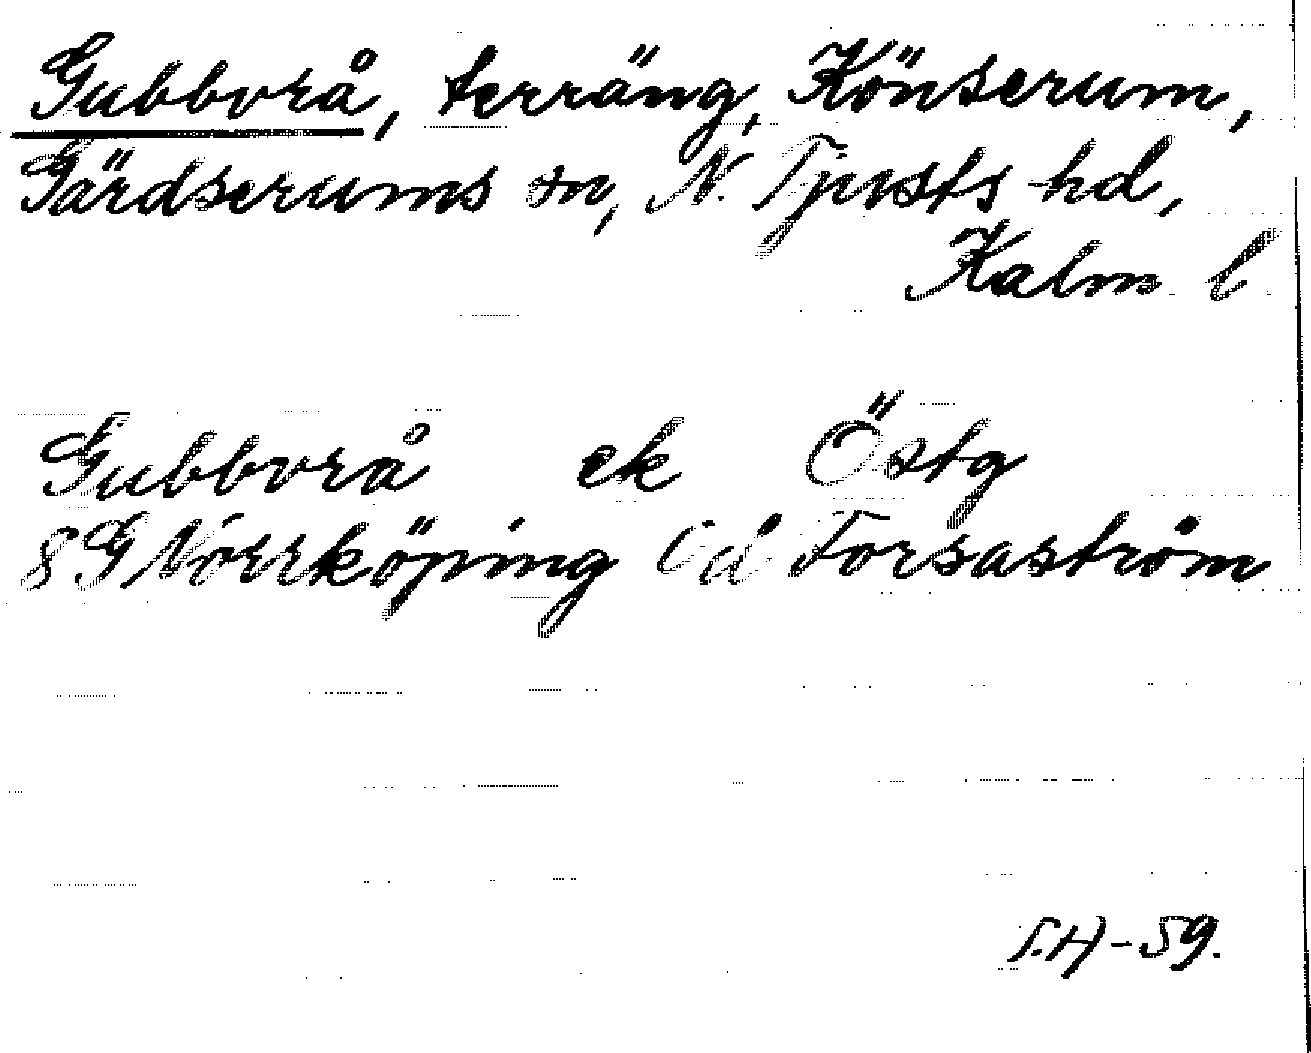 Gubbvrå, terräng, Könserum,
Gärdserums sn, N. Tjusts hd,
Kalm l
Gubbvrå ek Östg
8G Norrköping Forsaström
T.H-59.